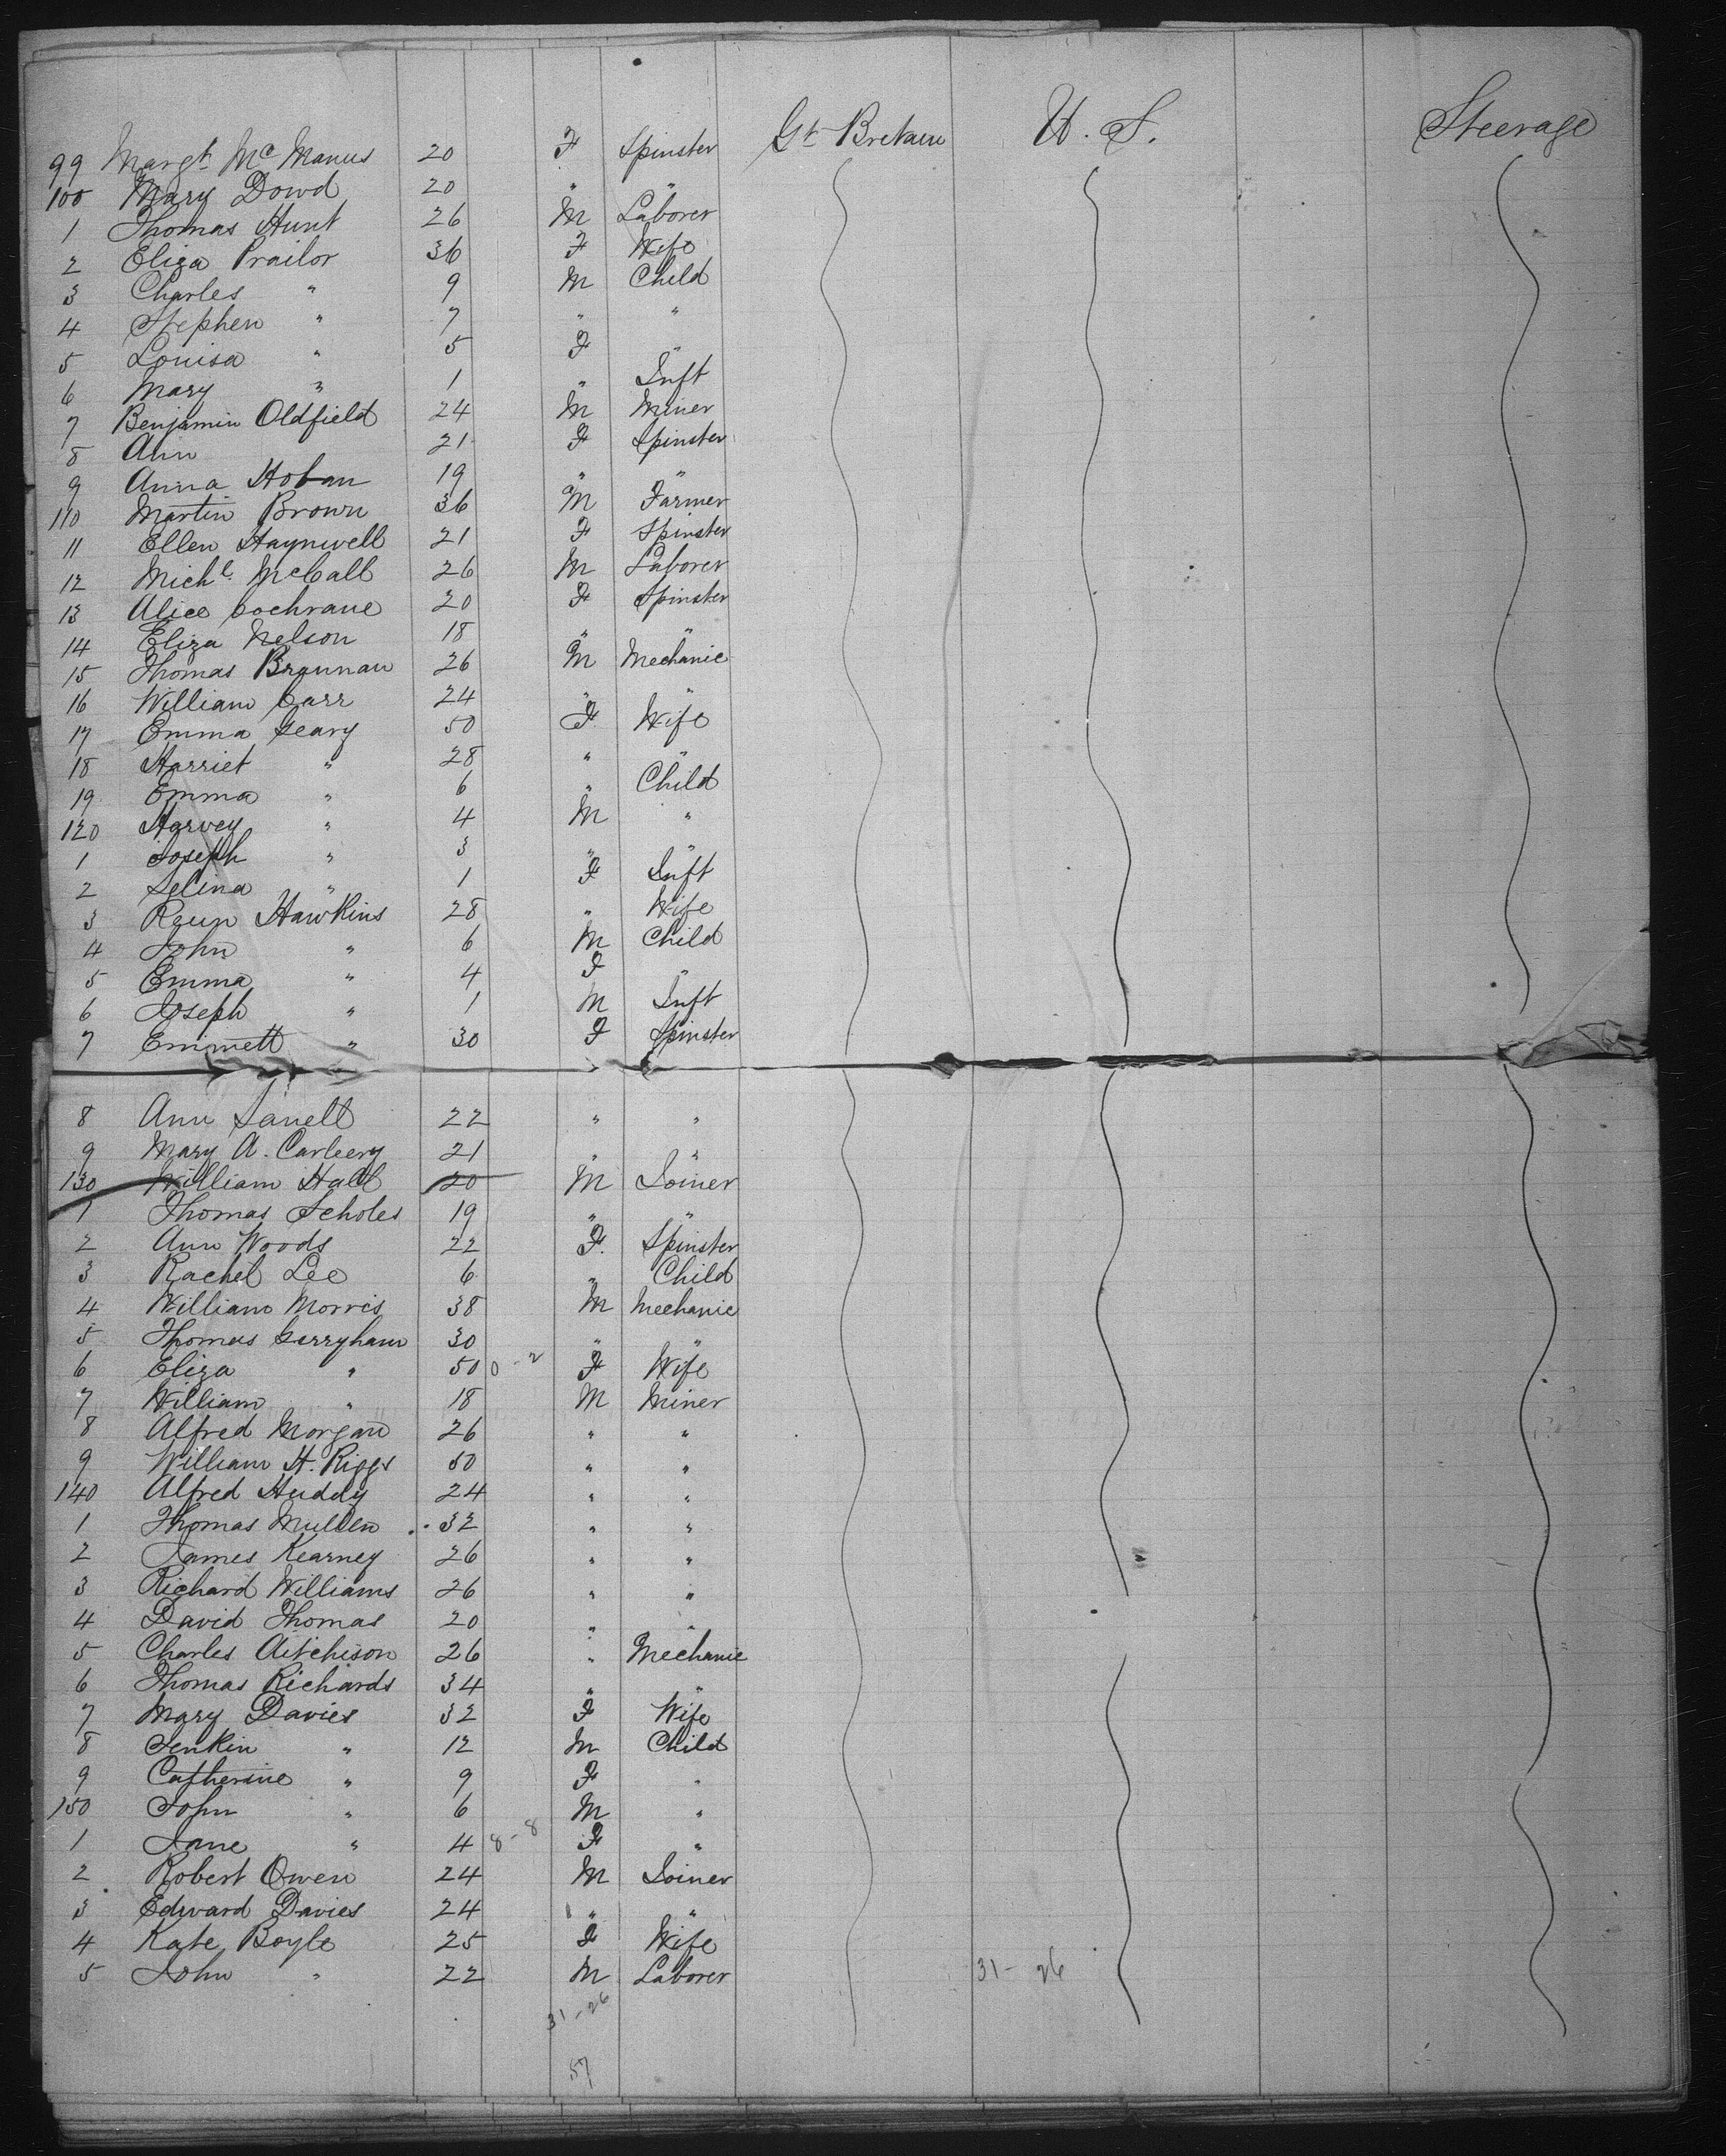 99 Margt McManus 20 F Spinster Gt Bretain U. S. Steerage
100 Mary Dowd 20 " "
1 Thomas Hunt 26 M Laborer
2 Eliza Prailor 36 F Wife
3 Charles " 9 M Child
4 Stephen " 7 " "
5 Louisa " 5 F "
6 Mary " 1 " Inft
7 Benjamin Oldfield 24 M Miner
8 Ann 21 F Spinster
9 Anna Hoban 19 " "
110 Martin Brown 36 M Farmer
11 Ellen Haynwell 21 F Spinster
12 Michl. McCall 26 M Laborer
13 Alice Cochrane 20 F Spinster
14 Eliza Nelson 18 " "
15 Thomas Brannan 26 M Mechanic
16 William Carr 24 " "
17 Emma Geary 50 F Wife
18 Harriet " 28 " "
19 Emma " 6 " Child
120 Harvey " 4 M "
1 Joseph " 3 " "
2 Selina " 1 F Inft
3 Hawkins 28 " Wife
4 John " 6 M Child
5 Emma " 4 F "
6 Joseph " 1 M Inft
7 Emmett " 30 F Spinster
8 Ann 22 " "
9 Mary A. Carleery 21 " "
130 William Hall 20 M Joiner
1 Thomas Scholes 19 " "
2 Ann Woods 22 F. Spinster
3 Rachel Lee 6 " Child
4 William Morris 38 M Mechanic
5 Thomas Gerryham 30 " "
6 Eliza " 50 0-2 F Wife
7 William " 18 M Miner
8 Alfred Morgan 26 " "
9 William H. Riggs 50 " "
140 Alfred Huddy 24 " "
1 Thomas Mullen 32 " "
2 James Kearney 26 " "
3 Richard Williams 26 " "
4 David Thomas 20 " "
5 Charles Aitchison 26 " Mechanic
6 Thomas Richards 34 " "
7 Mary Davies 32 F Wife
8 Jenkin " 12 M Child
9 Catherine " 9 F "
150 John " 6 M "
1 Jane " 4 8-8 F "
2 Robert Owen 24 M Joiner
3 Edward Davies 24 " "
4 Kate Boyle 25 F Wife
5 John " 22 M Laborer 31-26
31-26
57